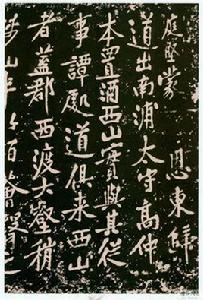 庭堅蒙 恩東歸
道出南浦太守高仲
本置酒西山實與其從
事譚處道俱來西山
者蓋郡西渡大壑稍